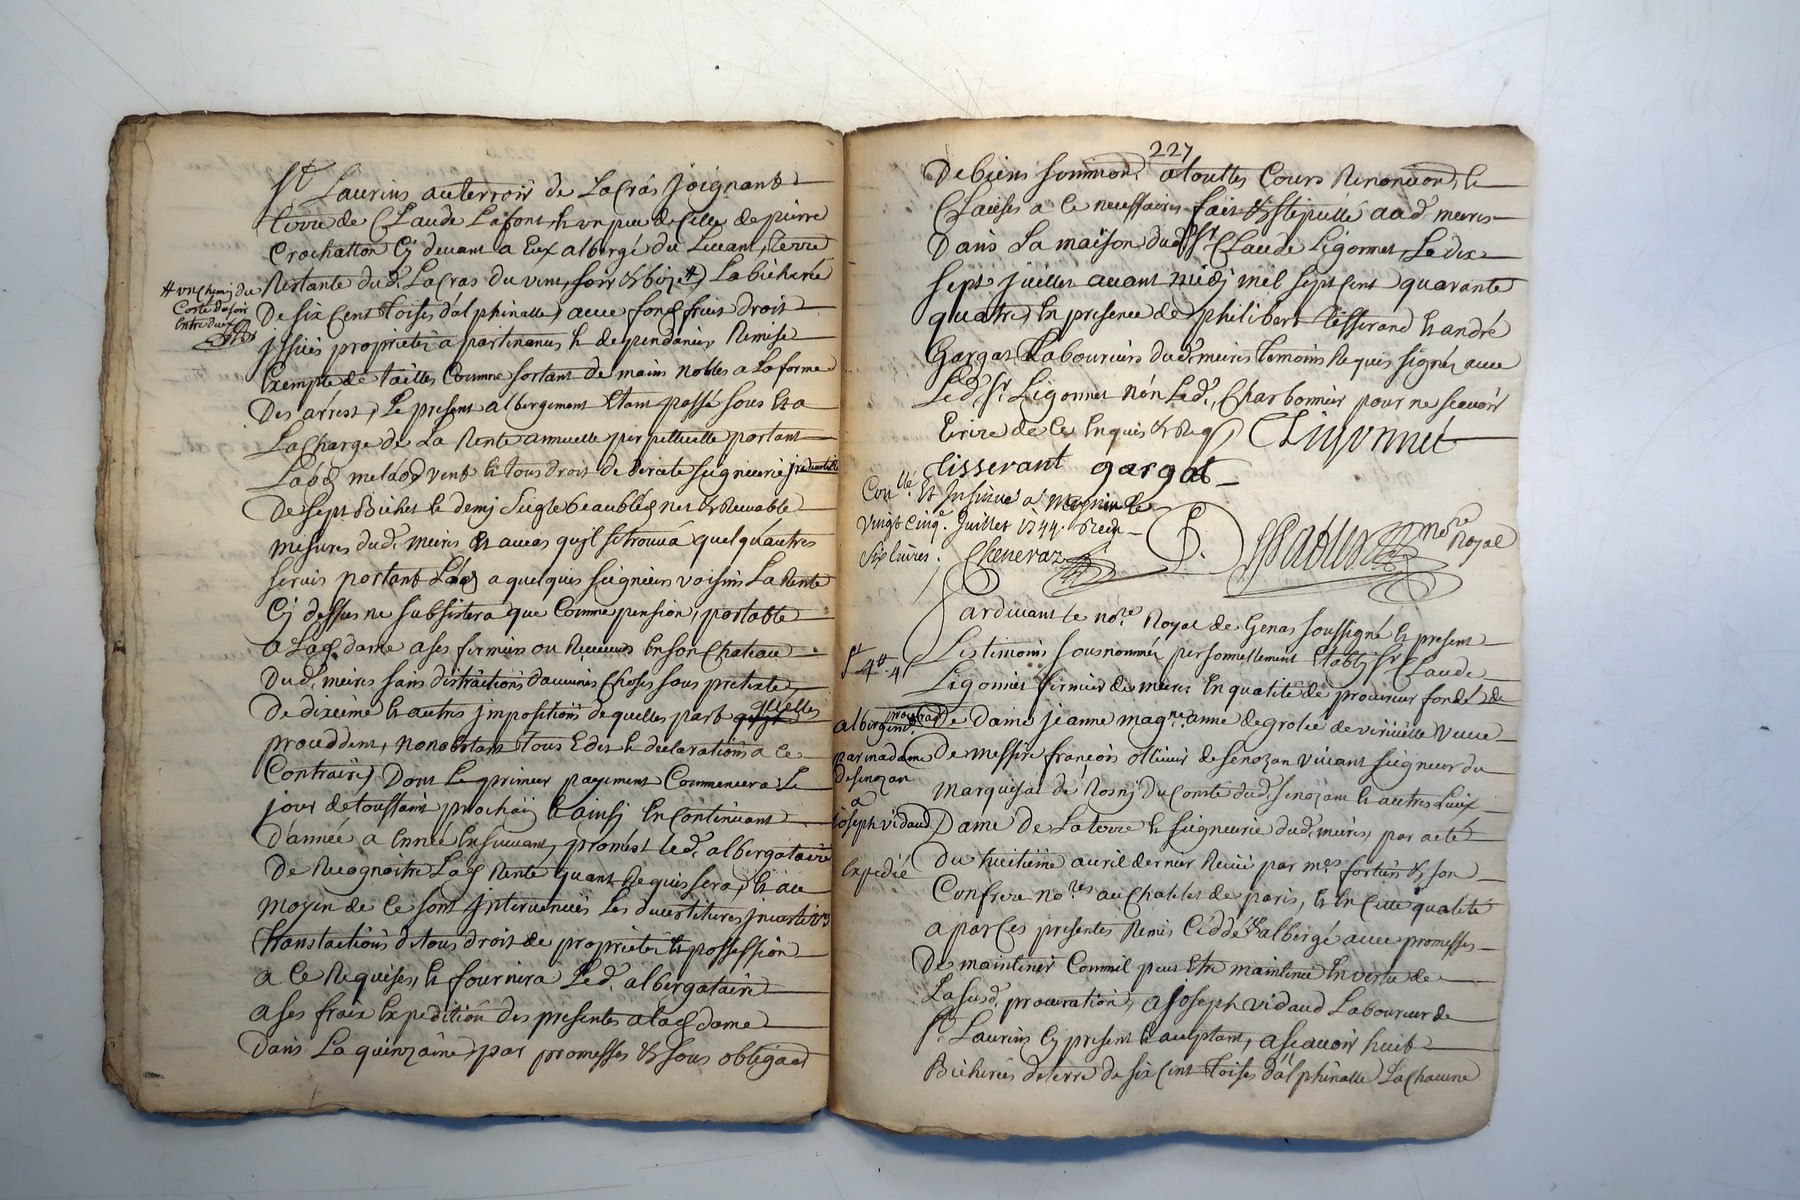 St Laurins au terroir de La Cras joignant
terre de Claude Lafont et un peu de celle de pierre
Crochatton cy devant a eux albergé du Levant, terre
Restante dud. La Cras du vent, soir et bize # La bicherée
# un chemin du
Coste de soir
entre deux
De six cent toises dalphinalle, avec fond fruit droit
issües proprietés apartinances et dependances Remise
Exempte de tailles Comme sortant de mains nobles a La forme
Des arrest, Le present albergement Etant passé sous et a
La Charge de La Rente annuelle perpetuelle portant
Laod milaod vent et tous droit de directe seigneurie
De sept Bichet et demy seigle beau bled net et Recevable
mesures dud. meiris et au cas qu'il se trouva quelqu'autres
servis portant Laod a quelques seigneurs voisins La Rente
Cy dessus ne subsistera que Comme pension, portable
a Lad. dame a ses fermiers ou Receveurs en son Chateau
Dud. meiris sans distractions d'aucunes Choses sous pretexte
De dixieme et autres impositions de quelles part quelles
proceddent, nonobstant tous Edits et declarations a ce
Contraire, Dont Le primeur payement Commencera Le
jour de toussaint prochain et ainsy En Continuant
D'année a Ennée En suivant, promest Led. albergataire
De Recognoitre Lad. Rente quant Requis sera, et au
moyen de ce sont intervenües Les devestitures investitures
translactions de tous droit de proprieté et possession
a ce Requises, et fournira Led. albergataire
a ses fraix Expedition des presentes a lad. dame
Dans La quinzaine, par promesses et sous obligaon
227
De biens soumions a touttes Cours Renonciaons et
Clauses a ce necessaires fait et stipullé aud. meiris
Dans La maison dud. Sr Claude Ligonnet, Le dix
sept juillet avant midy mil sept cent quarante
quatre, En presence de philibert tisserand et andré
Gargat Laboureurs dud. meiris temoins Requis signés avec
Led. Sr. Ligonnet nón Led. Charbonnier pour ne scavoir
Ecrire de ce Enquis et Requis Ligonnet
tisserant gargat
Conllé Et Insinué a
Vingt Cinqe. Juillet 1744. Recu
Six livres. Cheneraz
nore Royal
Pardevant le nore. Royal de Genas soussigné et present
Les temoins sousnommés personnellement Etably Sr Claude
Ligonnet fermier de meiris En qualité de procureur fondé de
De Dame jeanne magne. anne de grolée de virieville veuve
De messire françois ollivier de senozan vivant seigneur du
marquisat de Rosny Du Comté dud. senozan et autres Lieux
Dame de La terre et seigneurie dud. meiris, par acte
Du huitieme avril dernier Receu par mes. fortier et son
Confrere nores au Chatelet de paris, et En Cette qualité
a par Ces presentes Remis Ceddé et albergé avec promesses
De maintenir Comme il peut Etre maintenu En vertu de
La susd. procuration, a joseph vidaud Laboureur de
St. Laurins Cy present et acceptant, ascavoir huit
Bicherées de terre de six cent toises dalphinalle La Chacune
albergemt.
par madame
de senozan
a
joseph vidaud
Expedié